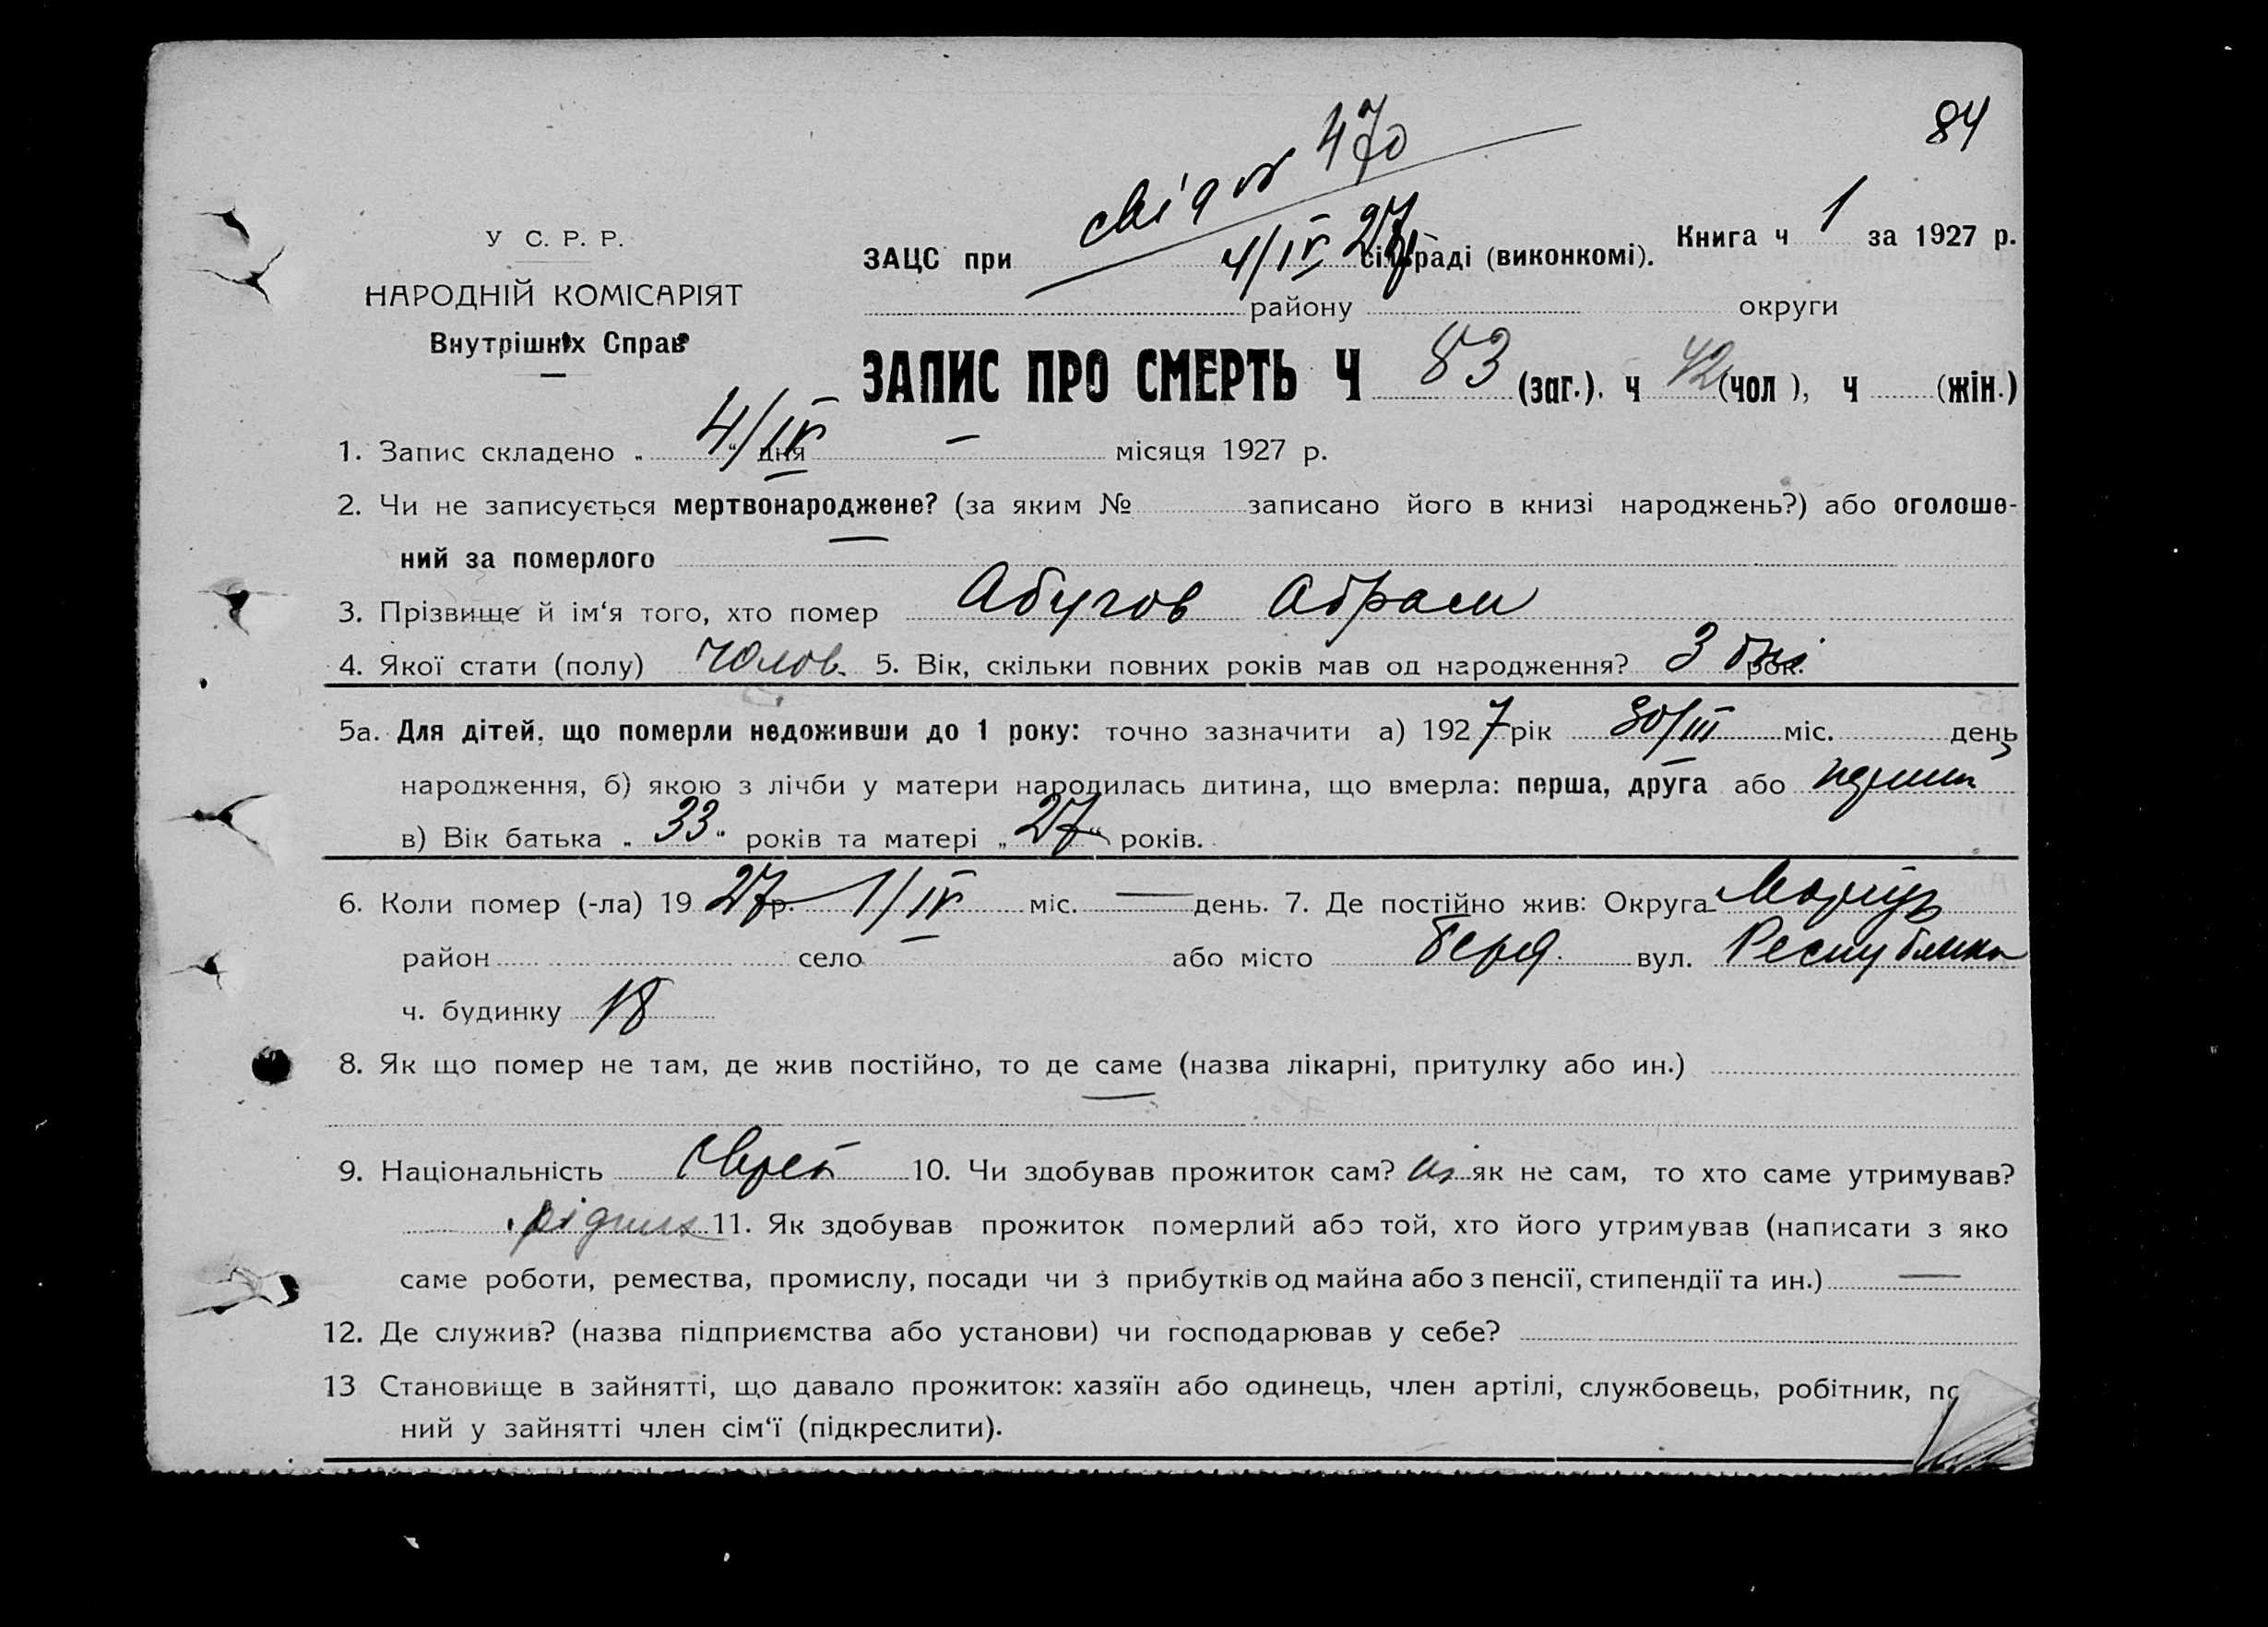 84
свідоц 470
4/IV 27
У С. Р. Р.
НАРОДНІЙ КОМІСАРІЯТ
Внутрішніх Справ
ЗАЦС при сільраді (виконкомі). Книга ч 1 за 1927 р.
району округи
ЗАПИС ПРО СМЕРТЬ Ч 83 (заг.). ч 42 (чол ), ч (жін.)
1. Запис складено „ 4/IV “ дня — місяця 1927 р.
2. Чи не записується мертвонароджене? (за яким № записано його в книзі народжень?) або оголоше-
ний за померлого —
3. Прізвище й ім‘я того, хто помер Абугов Абрам
4. Якої стати (полу) Чолов. 5. Вік, скільки повних років мав од народження? 3 дні рок.
5а. Для дітей, що померли недоживши до 1 року: точно зазначити а) 1927 рік 30/III міс. день
народження, б) якою з лічби у матери народилась дитина, що вмерла: перша, друга або
в) Вік батька „ 33 “ років та матері „ 27 “ років.
6. Коли помер (-ла) 19 27 р. 1/IV міс. — день. 7. Де постійно жив: Округа Маріуп
район село — або місто Берд. вул. Республики
ч. будинку 18
8. Як що помер не там, де жив постійно, то де саме (назва лікарні, притулку або ин.)
—
9. Національність Єврей 10. Чи здобував прожиток сам? ні як не сам, то хто саме утримував?
рідних 11. Як здобував прожиток померлий або той, хто його утримував (написати з яко
саме роботи, ремества, промислу, посади чи з прибутків од майна або з пенсії, стипендії та ин.) —
12. Де служив? (назва підприємства або установи) чи господарював у себе?
13 Становище в зайнятті, що давало прожиток: хазяїн або одинець, член артілі, службовець, робітник, по
ний у зайнятті член сім‘ї (підкреслити).